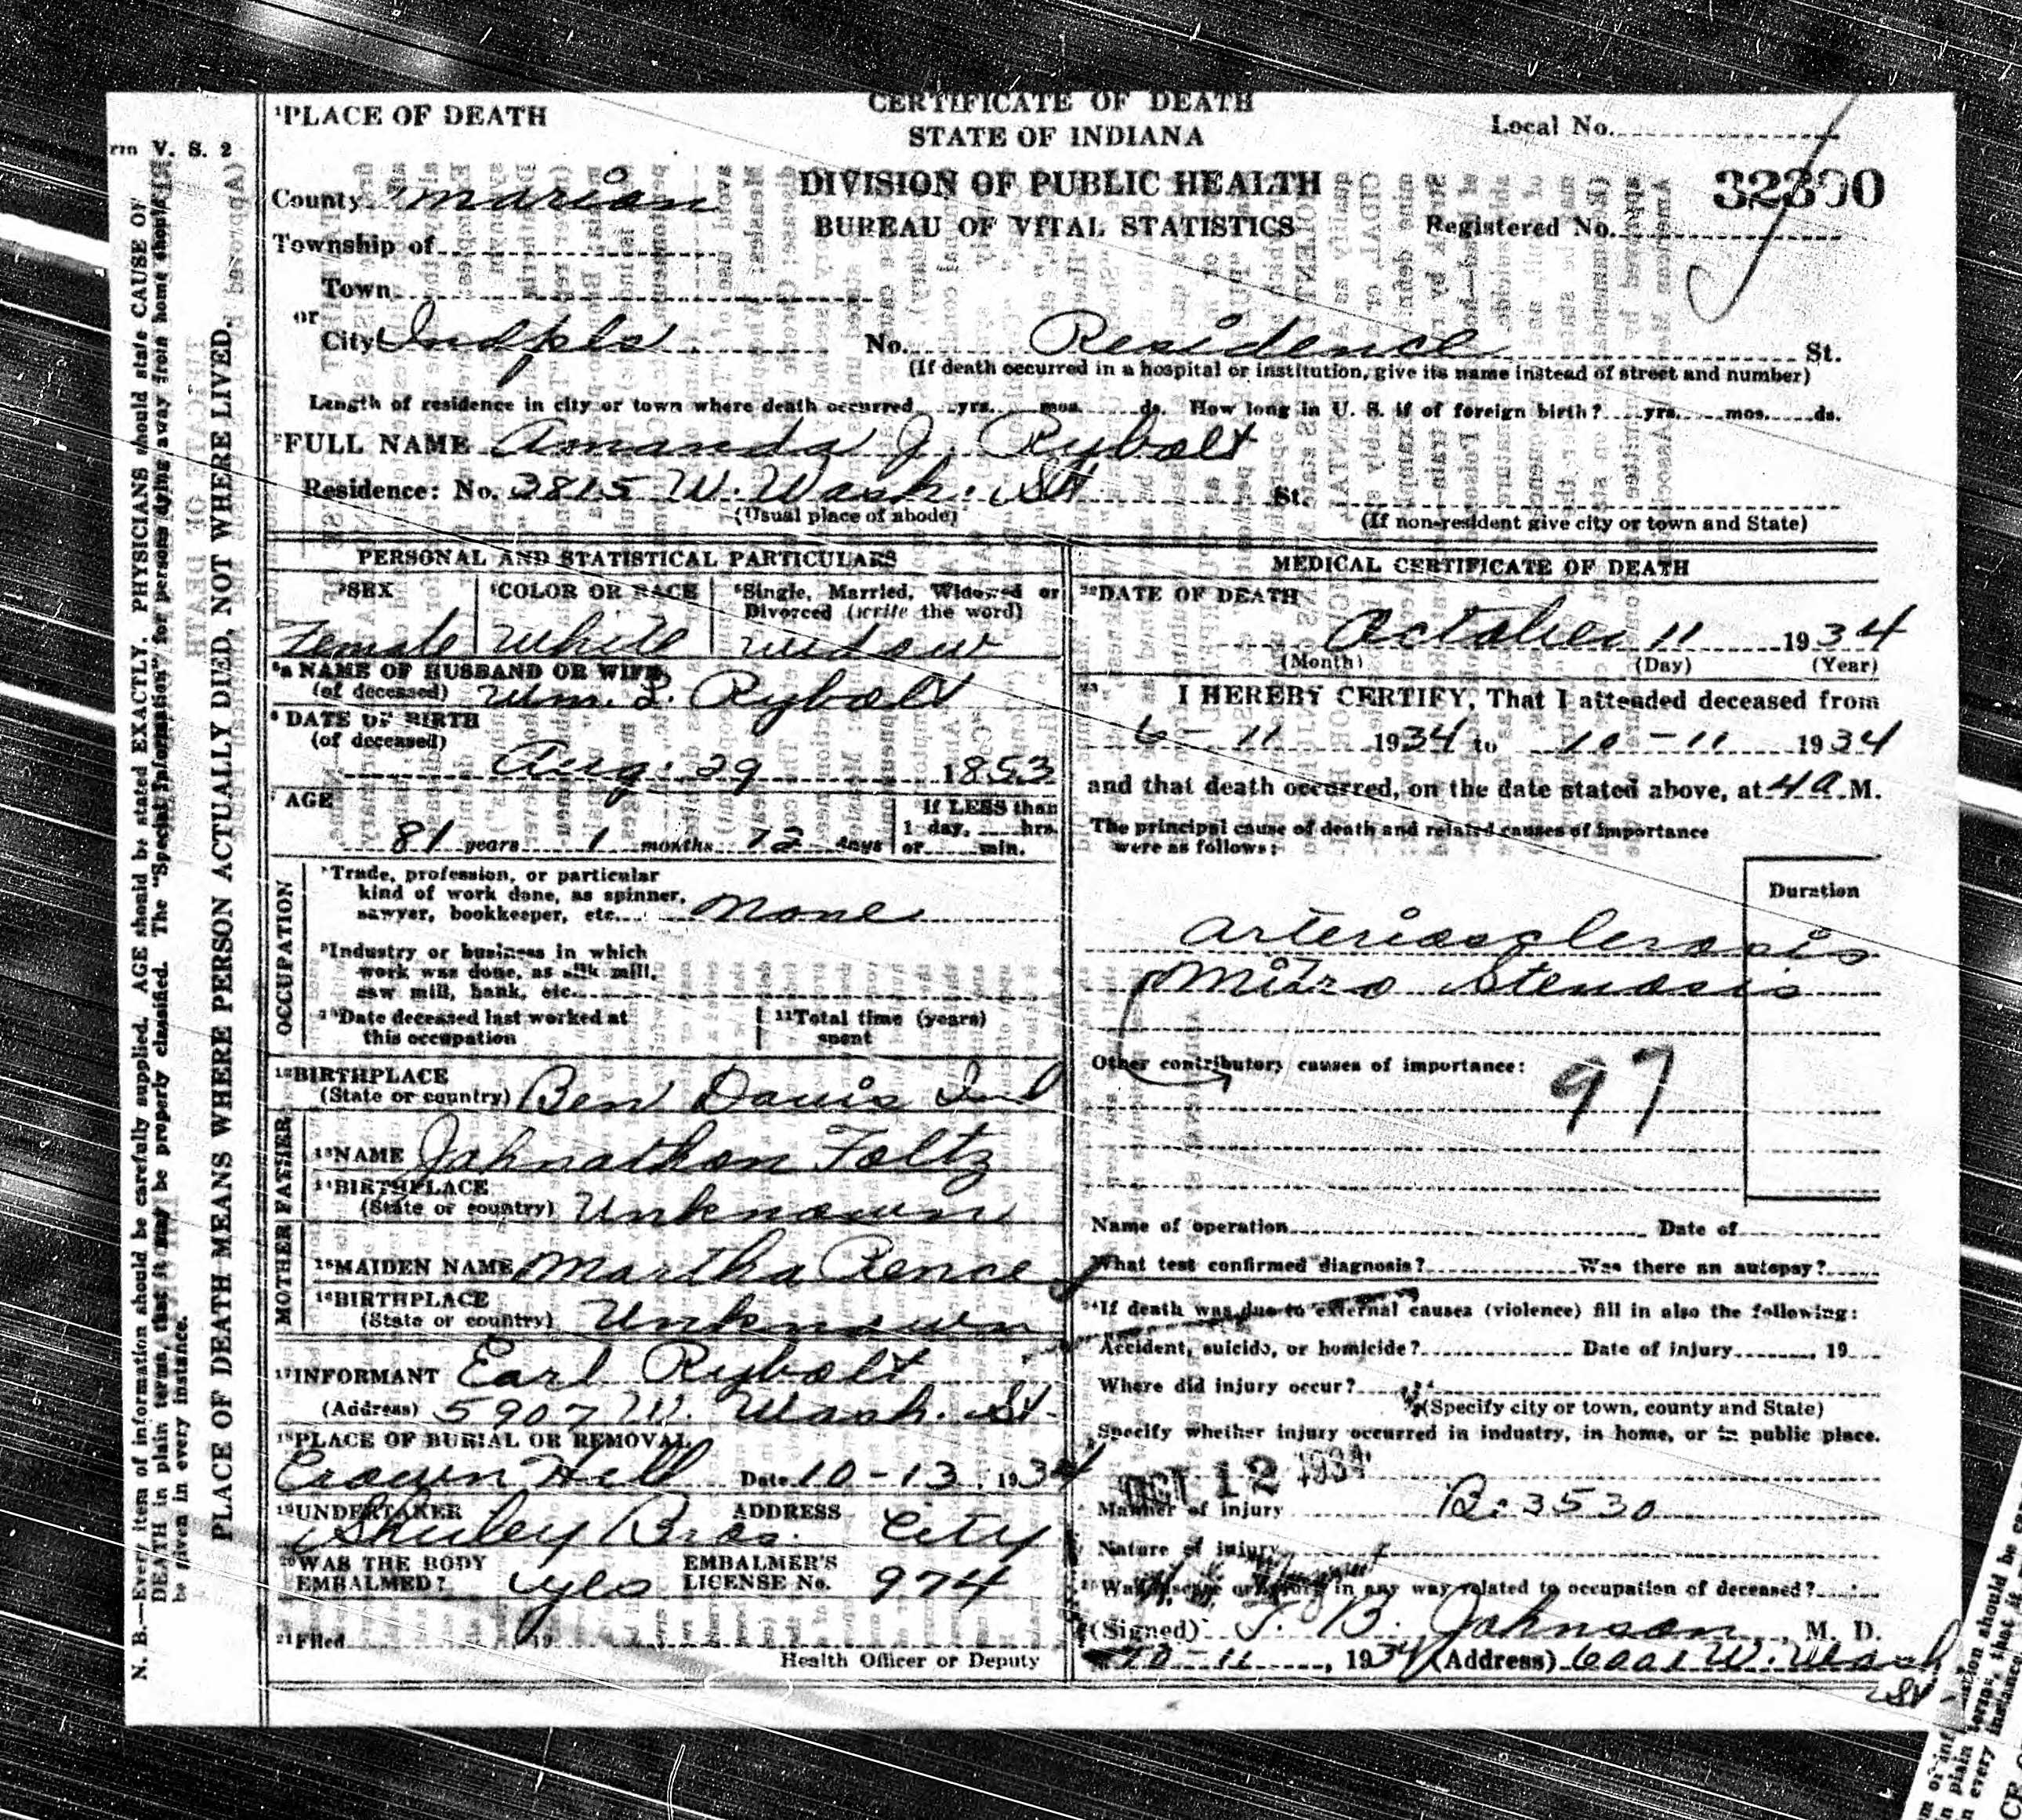 CERTIFICATE OF DEATH
STATE OF INDIANA
DIVISION OF PUBLIC HEALTH
BUREAU OF VITAL STATISTICS
Local No.
32390
Registered No.
rm V. S. 2
N. B.—Every item of information should be carefully supplied. AGE should be stated EXACTLY. PHYSICIANS should state CAUSE OF
DEATH in plain terms, that it may be properly classified. The "Special Information" for persons dying away from home should
be given in every instance.
PLACE OF DEATH MEANS WHERE PERSON ACTUALLY DIED, NOT WHERE LIVED.
1PLACE OF DEATH
County Marion
Township of
Town
or
City Indpls No. Residence St.
(If death occurred in a hospital or institution, give its name instead of street and number)
Length of residence in city or town where death occurred yrs. mos. ds. How long in U. S. if of foreign birth? yrs. mos. ds.
2FULL NAME Amanda J. Rybolt
Residence: No. 3815 W. Wash. St St.
(Usual place of abode) (If non-resident give city or town and State)
PERSONAL AND STATISTICAL PARTICULARS
3SEX 4COLOR OR RACE 5Single, Married, Widowed or
Divorced (write the word)
Female White widow
5a NAME OF HUSBAND OR WIFE
(of deceased) Wm. L. Rybolt
6 DATE OF BIRTH
(of deceased)
Aug. 29 1853
7 AGE If LESS than
1 day, hrs.
81 years 1 months 12 days or min.
OCCUPATION
8Trade, profession, or particular
kind of work done, as spinner,
sawyer, bookkeeper, etc. None
9Industry or business in which
work was done, as silk mill,
saw mill, bank, etc.
10Date deceased last worked at 11Total time (years)
this occupation spent
12BIRTHPLACE
(State or country) Ben Davis Ind
FATHER
13NAME Johnathon Foltz
14BIRTHPLACE
(State or country) Unknown
MOTHER
15MAIDEN NAME Martha Rence
16BIRTHPLACE
(State or country) Unknown
17INFORMANT Earl Rybolt
(Address) 5907 W. Wash. St.
18PLACE OF BURIAL OR REMOVAL
Crown Hill Date 10-13, 1934
19UNDERTAKER ADDRESS
Shirley Bros. City
20WAS THE BODY EMBALMER'S
EMBALMED? yes LICENSE No. 974
21Filed 19
Health Officer or Deputy
MEDICAL CERTIFICATE OF DEATH
22DATE OF DEATH
October 11 1934
(Month) (Day) (Year)
I HEREBY CERTIFY, That I attended deceased from
6-11 1934 to 10-11 1934
and that death occurred, on the date stated above, at 4 a. M.
The principal cause of death and related causes of importance
were as follows:
Duration
Arteriosclerosis
Mitro Stenosis
Other contributory causes of importance:
97
Name of operation Date of
What test confirmed diagnosis? Was there an autopsy?
24If death was due to external causes (violence) fill in also the following:
Accident, suicide, or homicide? Date of injury , 19
Where did injury occur?
(Specify city or town, county and State)
Specify whether injury occurred in industry, in home, or in public place.
OCT 12 1934
Manner of injury B. 3530
Nature of injury
Was disease or injury in any way related to occupation of deceased?
(Signed) T. B. Johnson, M. D.
10-11, 1934 (Address) 6001 W. Wash
St